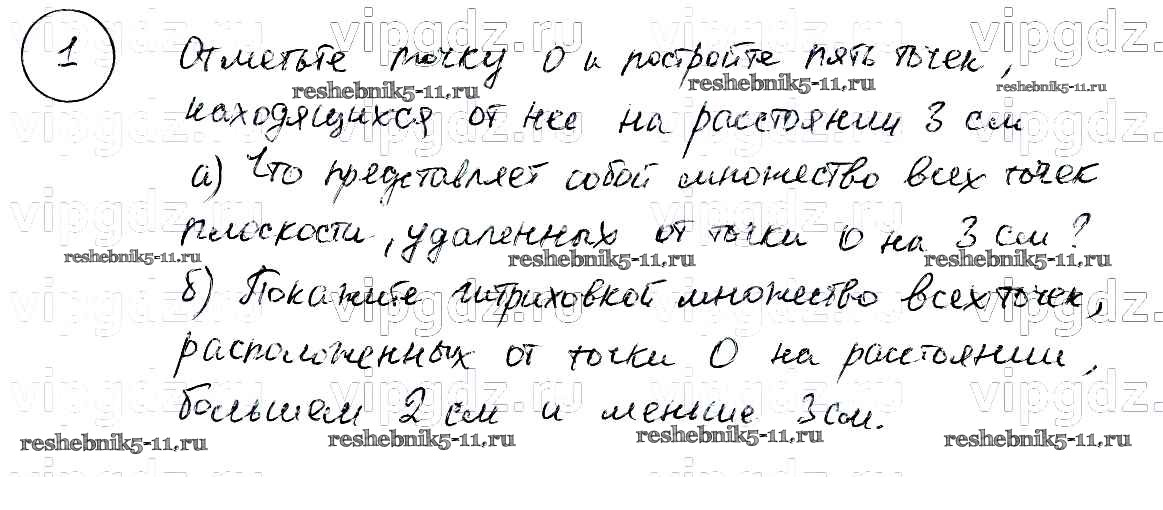 1 Отметьте точку О и постройте пять точек,
находящихся от нее на расстоянии 3 см
а) Что представляет собой множество всех точек
плоскости, удаленных от точки О на 3 см?
б) Покажите штриховкой множество всех точек,
расположенных от точки О на расстоянии,
большем 2 см и меньше 3 см.
vipgdz.ru
reshebnik5-11.ru